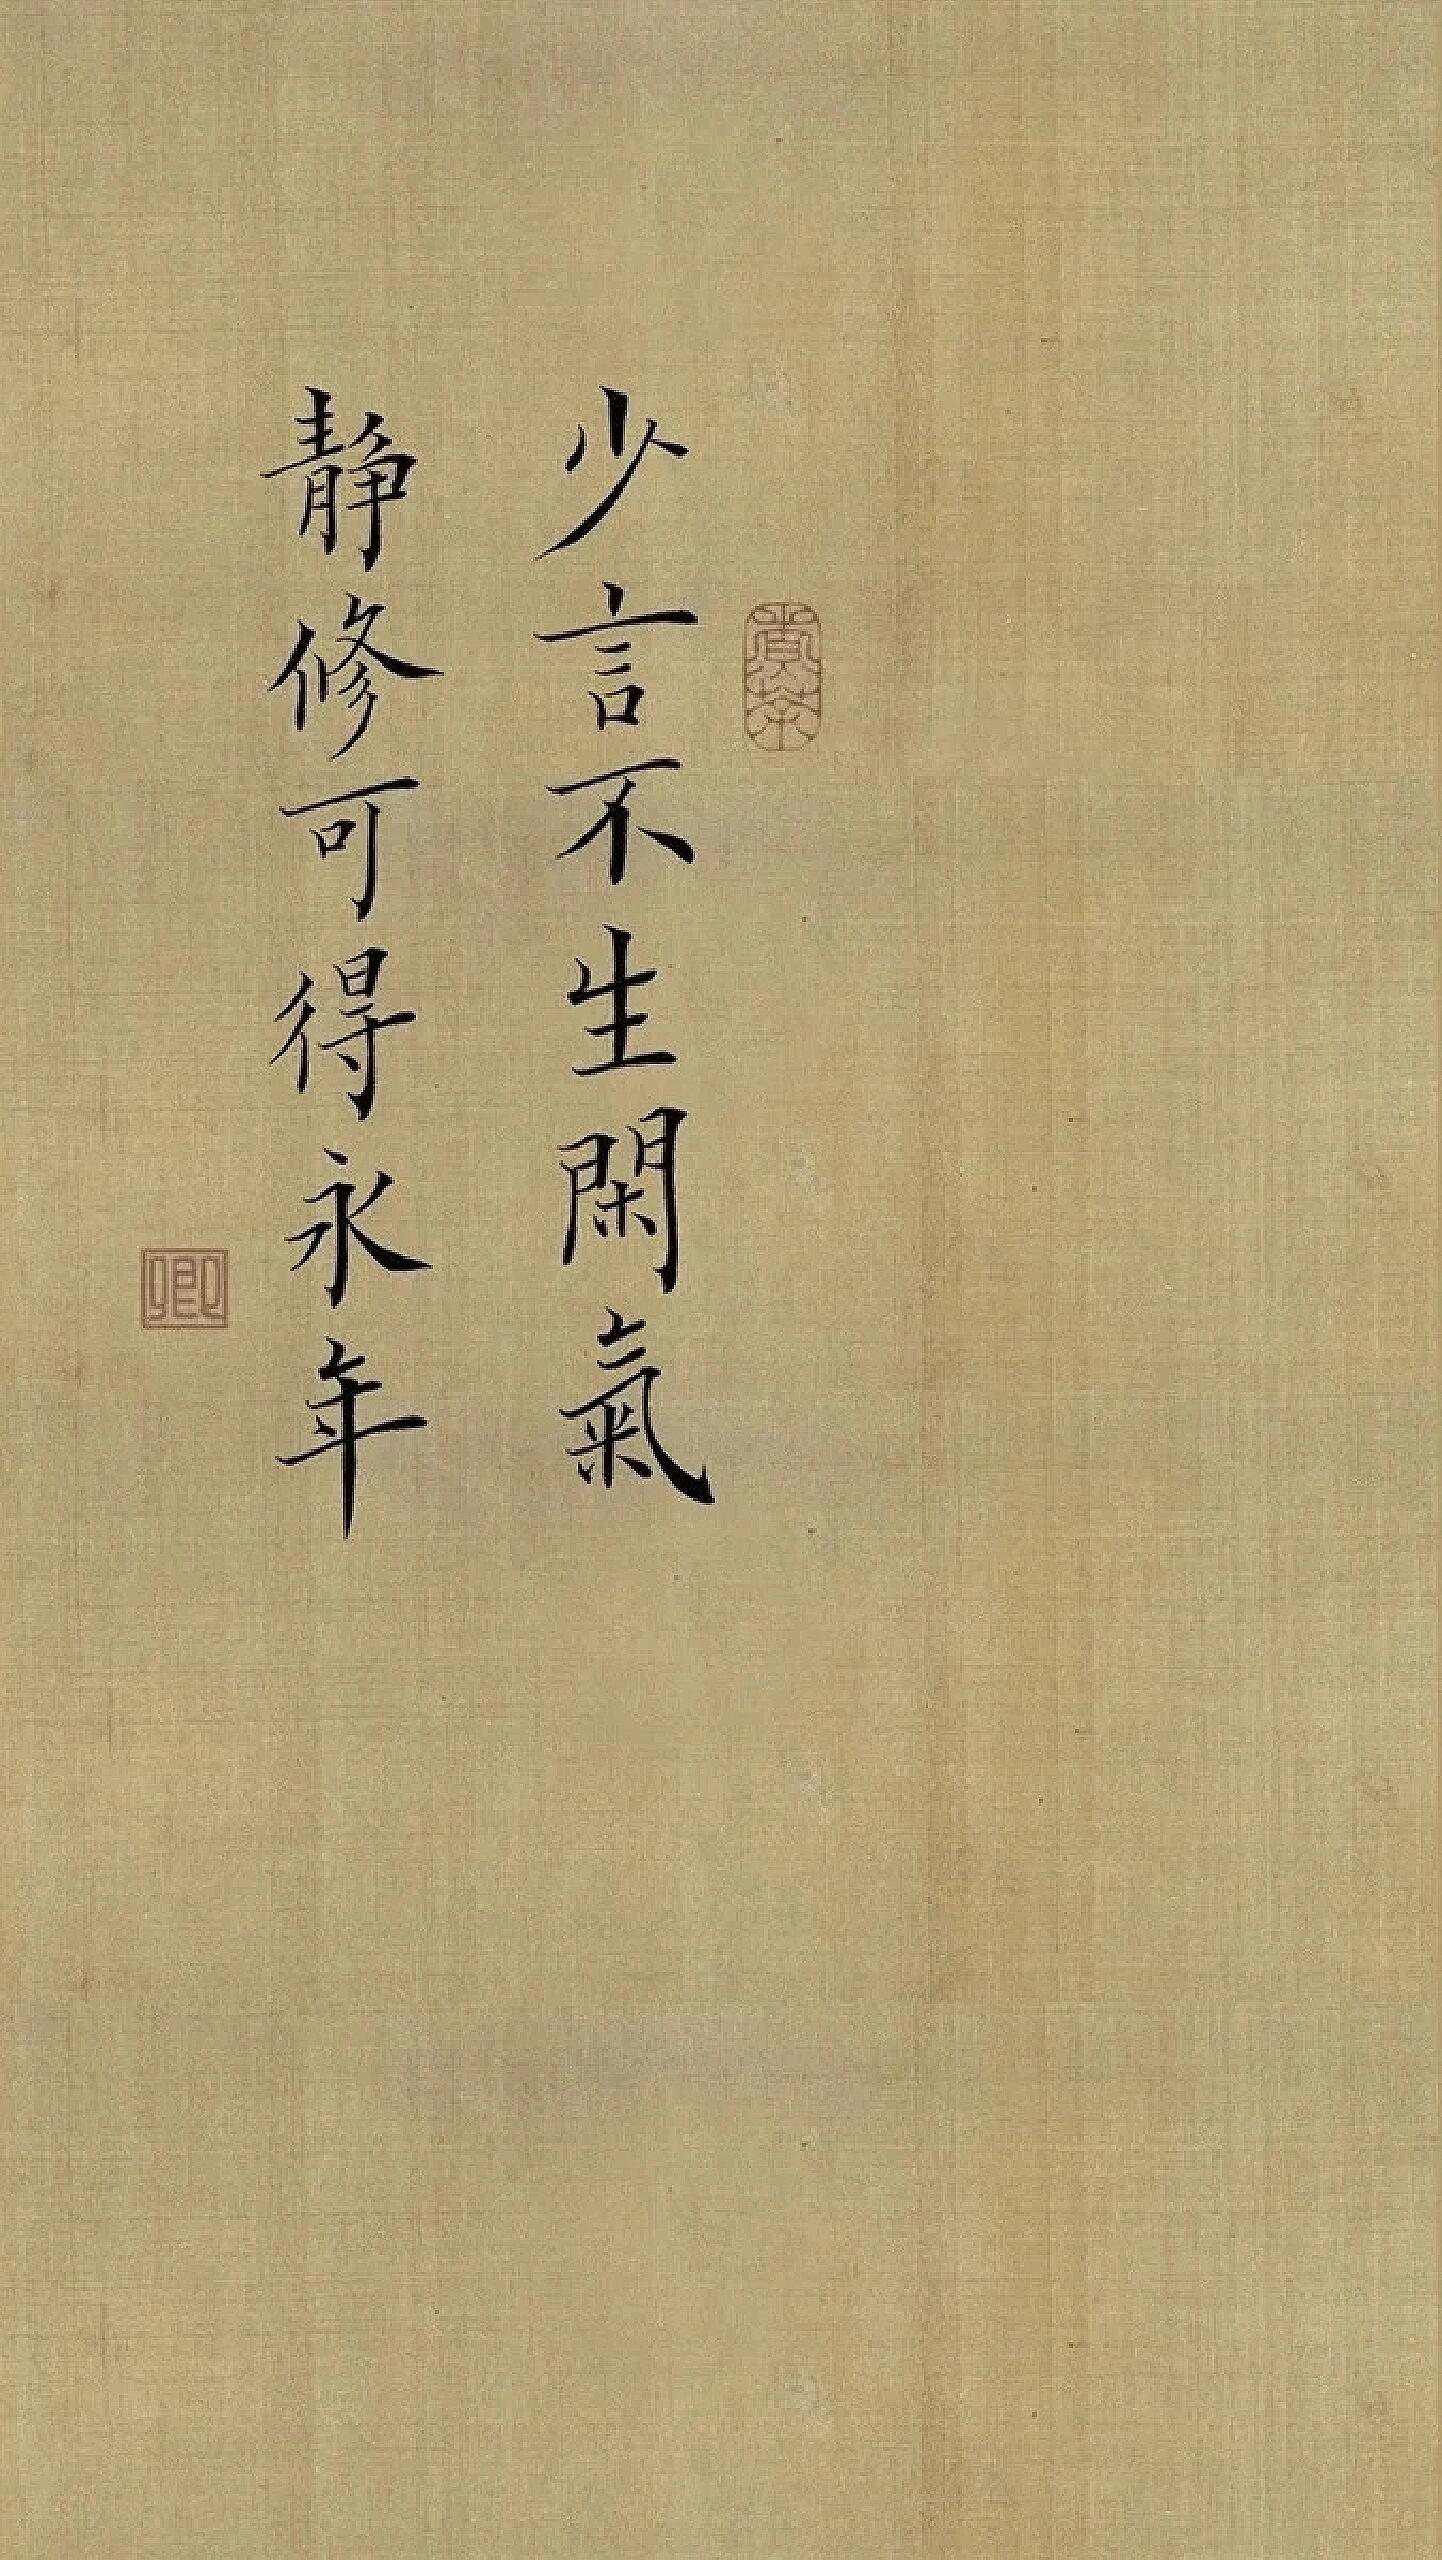 少言不生閑氣
靜修可得永年